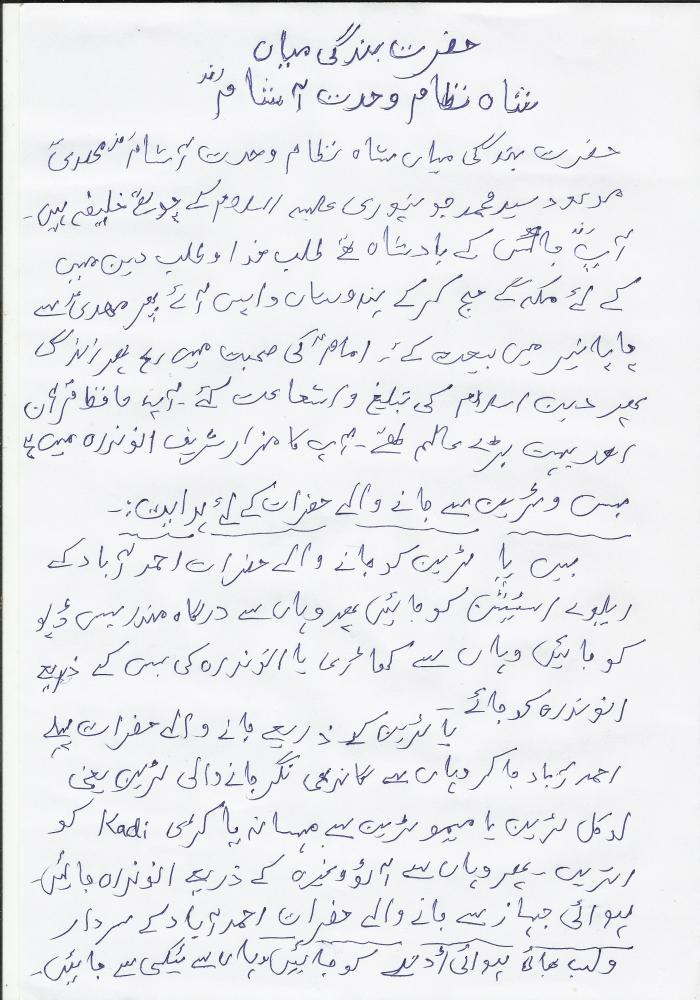 حضرت بندگی میاں
شاہ نظام وحدت آشامؓ
حضرت بندگی میاں شاہ نظام وحدت آشامؓ مہدیؑ
موعود سید محمد جونپوری علیہ السلام کے چوتھے خلیفہ ہیں۔
آپؓ جائس کے بادشاہ تھے طلب خدا و طلب دین میں
کے لئے مکہ گے حج کرکے ہندوستان واپس آئے پھر مہدیؑ سے
چاپانیر میں بیعت کئے امامؑ کی صحبت میں رہے پھر زندگی
بھر دین اسلام کی تبلیغ و اشاعت کئے۔ آپ حافظ قرآن
اور بہت بڑے عالم تھے۔ آپ کا مزار شریف انوندرہ میں ہے
بس و ٹرین سے جانے والے حضرات کے لئے ہدایت:۔
بس یا ٹرین کو جانے والے حضرات احمد آباد کے
ریلوے اسٹیشن کو جائیں پھر وہاں سے درگاہ مندر بس ڈپو
کو جائیں وہاں سے یا انوندرہ کی بس کے ذریعے
انوندرہ کو جائے
یا ٹرین کے ذریعے جانے والے حضرات پہلے
احمد آباد جا کر وہاں سے گاندھی نگر جانے والی ٹرین یعنی
لوکل ٹرین یا میمو ٹرین سے مہسانہ یا کڑی Kadi کو
اتریں۔ پھر وہاں سے آٹو وغیرہ کے ذریعے انوندرہ جائیں۔
ہوائی جہاز سے جانے والے حضرات احمد آباد کے سردار
ولب بھائی ہوائی اڈے کو جائیں وہاں سے ٹیکسی سے جائیں۔